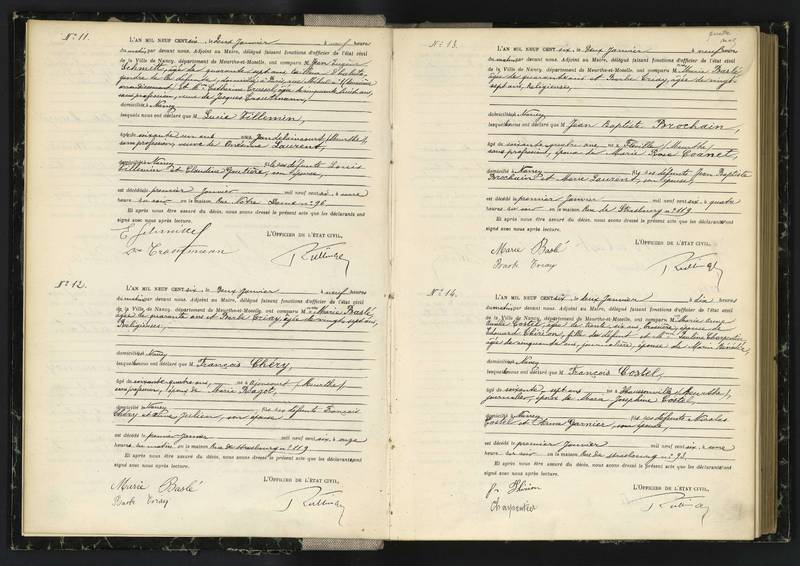 N° 11.
L'AN MIL NEUF CENT six, le deux Janvier à neuf heures
du matin par devant nous, Adjoint au Maire, délégué faisant fonctions d'officier de l'état civil
de la Ville de Nancy, département de Meurthe-et-Moselle, ont comparu M. Jean Eugène
Schmitt, âgé de quarante sept ans
gendre de la défunte, domicilié à
et Catherine âgée de cinquante huit ans,
sans profession, veuve de Jacques
domiciliés à Nancy
lesquels nous ont déclaré que M. Lucie Villemin,
âgée de soixante un ans née à Jandelaincourt (Meurthe),
sans profession, veuve de Laurent,
domiciliée à Nancy fille des défunts Louis
Villemin et Claudine son épouse,
est décédée le premier Janvier mil neuf cent six, à onze
heures du soir en la maison Rue Notre Dame n° 96.
Et après nous être assuré du décès, nous avons dressé le présent acte que les déclarants ont
signé avec nous après lecture.
L'OFFICIER DE L'ÉTAT CIVIL,
E. Schmitt
N° 12.
L'AN MIL NEUF CENT six, le deux Janvier à neuf heures
du matin par devant nous, Adjoint au Maire, délégué faisant fonctions d'officier de l'état civil
de la Ville de Nancy, département de Meurthe-et-Moselle, ont comparu M. Marie Baslé,
âgée de quarante ans et Barbe âgée de vingt sept ans,
Religieuses,
domiciliées à Nancy
lesquelles nous ont déclaré que M. François Chéry,
âgé de soixante quatre ans, né à (Meurthe)
sans profession, époux de Marie
domicilié à Nancy fils des défunts François
Chéry et son épouse
est décédé le premier Janvier mil neuf cent six, à onze
heures du matin en la maison Rue de Strasbourg n° 119.
Et après nous être assuré du décès, nous avons dressé le présent acte que les déclarants ont
signé avec nous après lecture.
L'OFFICIER DE L'ÉTAT CIVIL,
Marie Baslé
N° 13.
L'AN MIL NEUF CENT six, le deux Janvier à neuf heures
du matin par devant nous, Adjoint au Maire, délégué faisant fonctions d'officier de l'état civil
de la Ville de Nancy, département de Meurthe-et-Moselle, ont comparu M. Marie Baslé
âgée de quarante ans et Barbe âgée de vingt
sept ans, Religieuses,
domiciliées à Nancy
lesquelles nous ont déclaré que M. Jean Baptiste Brochain,
âgé de soixante quatre ans né à (Meurthe),
sans profession, époux de Marie Rose
domicilié à Nancy fils des défunts Jean Baptiste
Brochain et Marie Laurent, son épouse,
est décédé le premier Janvier mil neuf cent six, à quatre
heures du soir en la maison Rue de Strasbourg n° 119
Et après nous être assuré du décès, nous avons dressé le présent acte que les déclarants ont
signé avec nous après lecture.
L'OFFICIER DE L'ÉTAT CIVIL,
Marie Baslé
N° 14.
L'AN MIL NEUF CENT six, le deux Janvier à dix heures
du matin par devant nous, Adjoint au Maire, délégué faisant fonctions d'officier de l'état civil
de la Ville de Nancy, département de Meurthe-et-Moselle, ont comparu M. Marie
Costel, âgée de trente six ans, épouse de
Edouard fille du défunt et Charpentier,
âgée de cinquante ans, journalière, épouse de
domiciliées à Nancy
lesquelles nous ont déclaré que M. François Costel,
âgé de soixante sept ans né à Haussonville (Meurthe),
journalier, époux de Marie Joséphine Costel,
domicilié à Nancy fils des défunts Nicolas
Costel et Anne Garnier, son épouse,
est décédé le premier Janvier mil neuf cent six, à onze
heures du soir en la maison Rue de Strasbourg n° 93.
Et après nous être assuré du décès, nous avons dressé le présent acte que les déclarants ont
signé avec nous après lecture.
L'OFFICIER DE L'ÉTAT CIVIL,
Charpentier